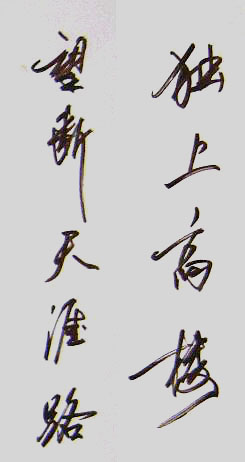 独上高楼
望断天涯路